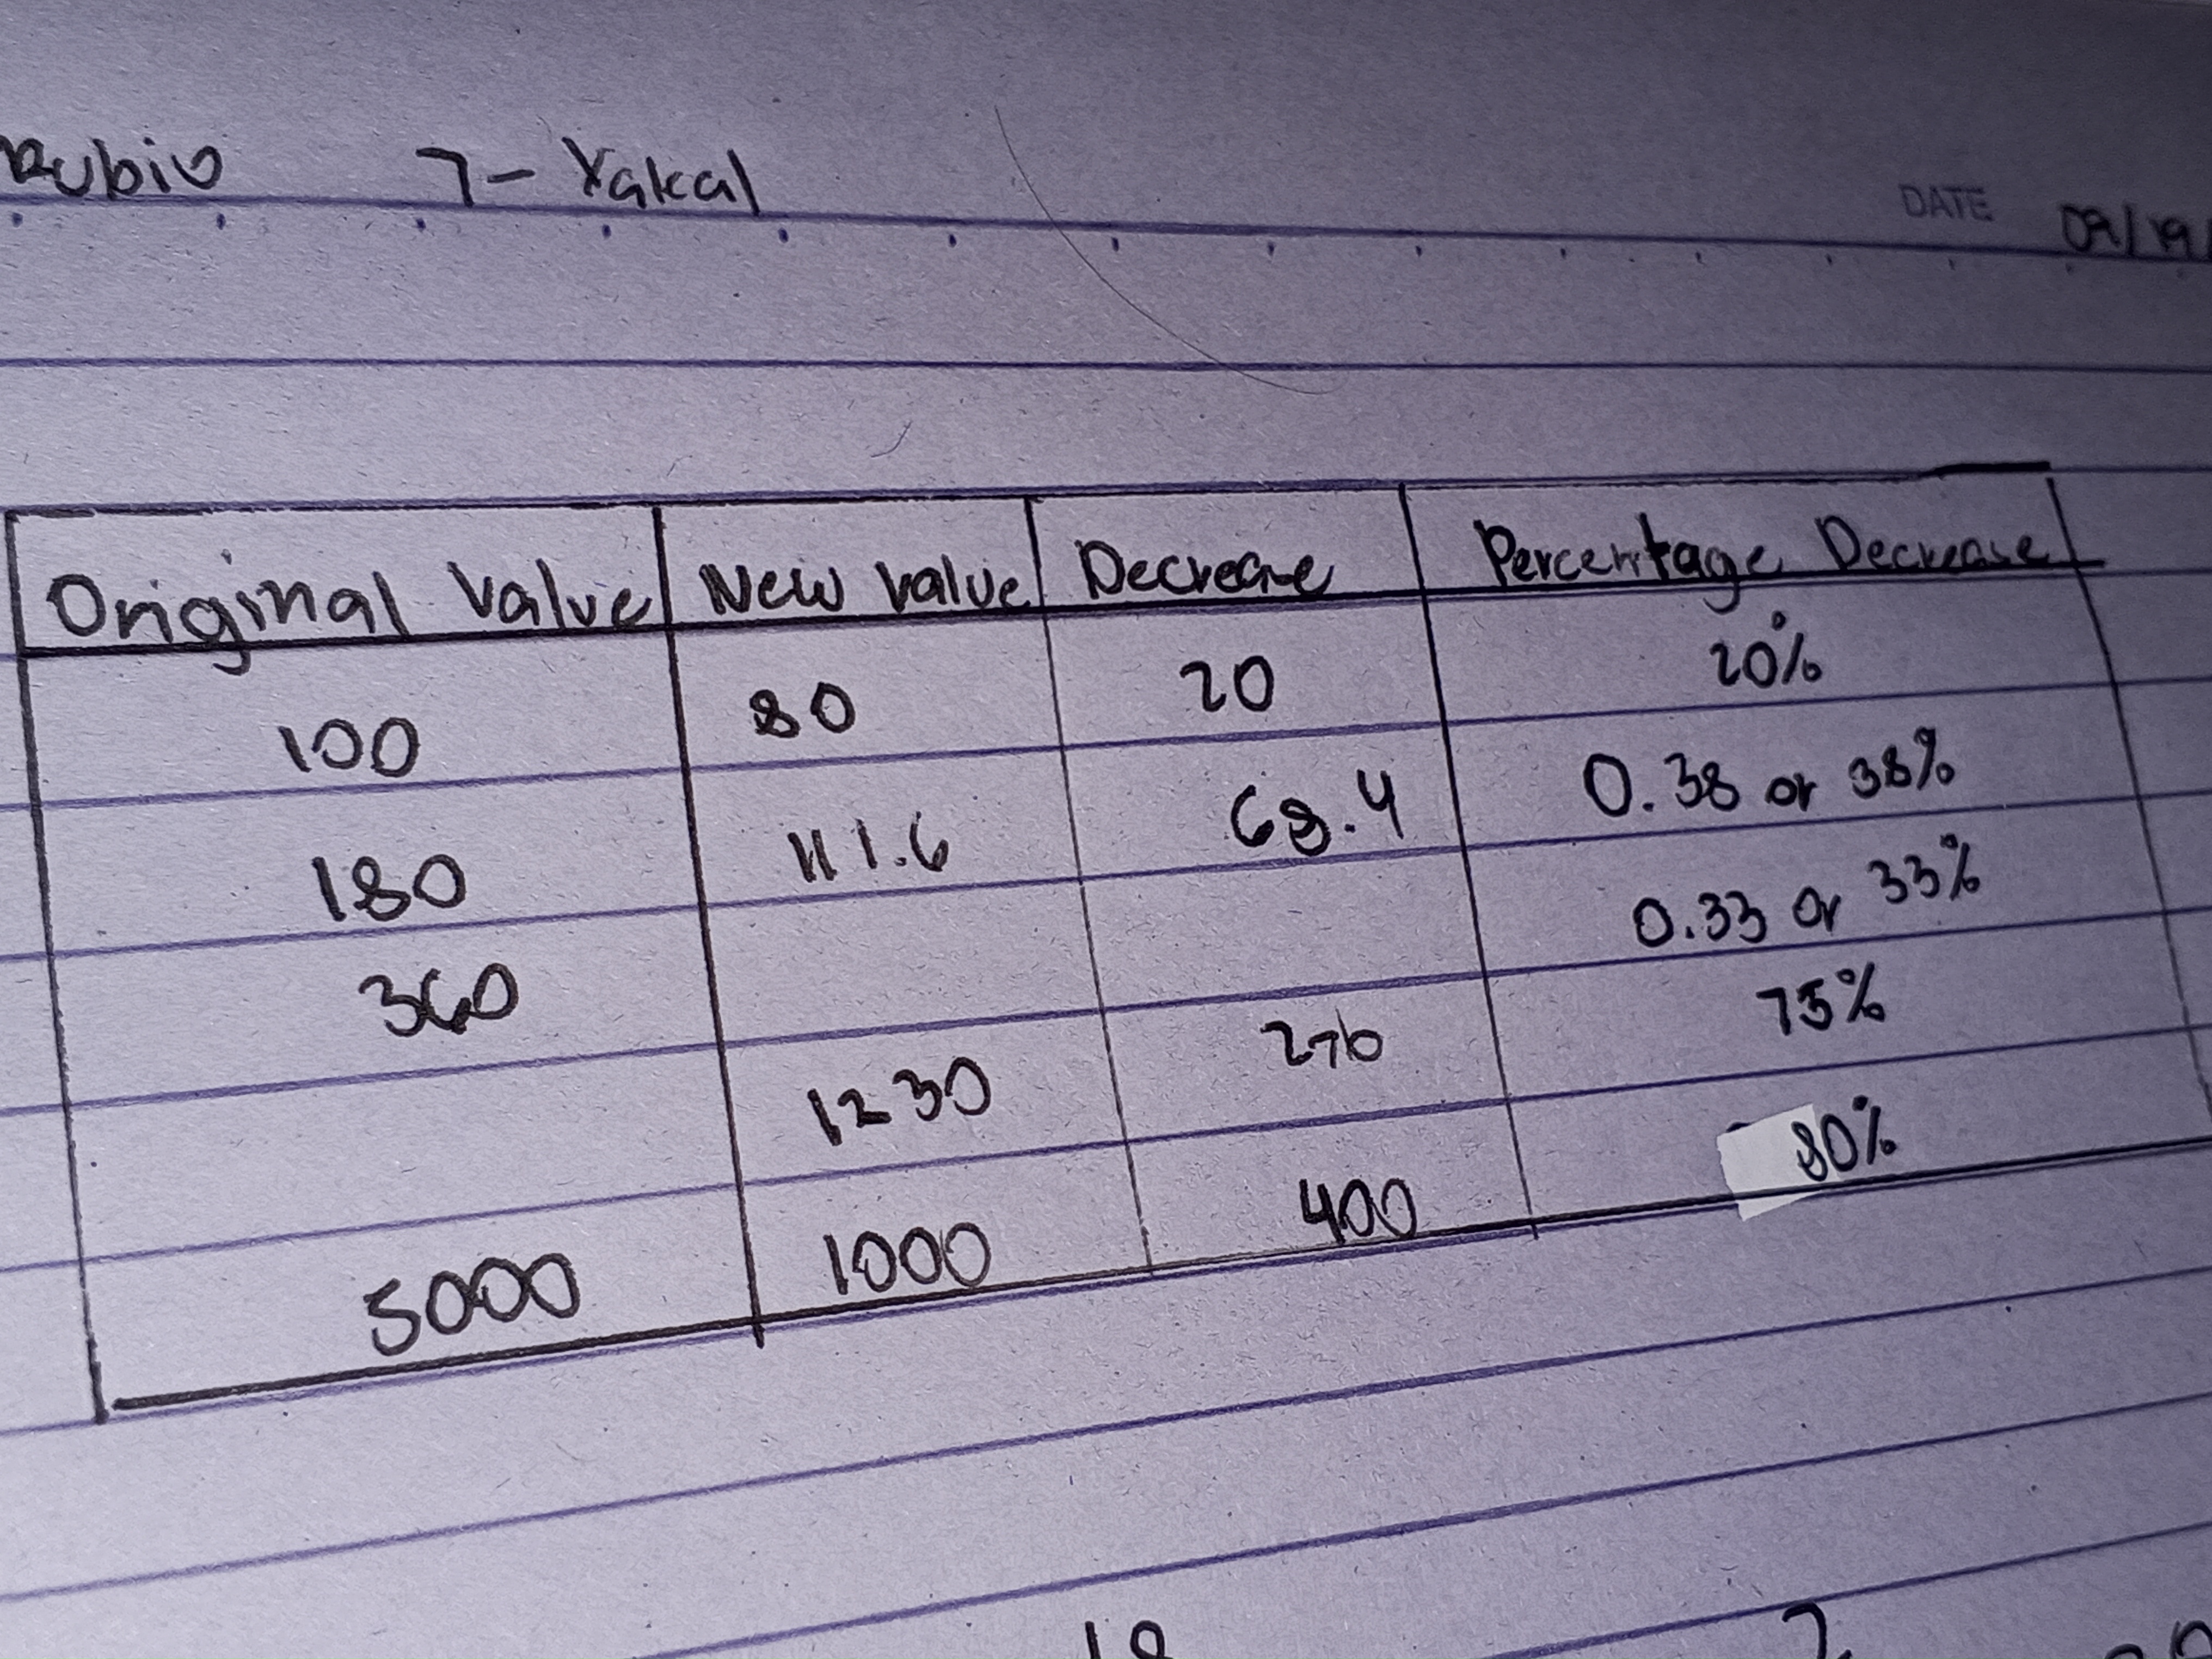 Rubio 7- Yakal
DATE 09/19/
Original Value New Value Decrease Percentage Decrease
100 80 20 20%
180 111.6 68.4 0.38 or 38%
360 0.33 or 33%
1230 270 75%
5000 1000 400 80%
18 2